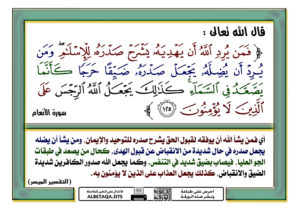 قال الله تعالى :
﴿ فَمَن يُرِدِ ٱللَّهُ أَن يَهْدِيَهُۥ يَشْرَحْ صَدْرَهُۥ لِلْإِسْلَٰمِ ۖ وَمَن
يُرِدْ أَن يُضِلَّهُۥ يَجْعَلْ صَدْرَهُۥ ضَيِّقًا حَرَجًا كَأَنَّمَا
يَصَّعَّدُ فِى ٱلسَّمَآءِ ۚ كَذَٰلِكَ يَجْعَلُ ٱللَّهُ ٱلرِّجْسَ عَلَى
ٱلَّذِينَ لَا يُؤْمِنُونَ ١٢٥ ﴾
سورة الأنعام
أي فمن يشأ الله أن يوفقه لقبول الحق يشرح صدره للتوحيد والإيمان، ومن يشأ أن يضله
يجعل صدره في حال شديدة من الانقباض عن قبول الهدى، كحال من يصعد في طبقات
الجو العليا، فيصاب بضيق شديد في التنفس. وكما يجعل الله صدور الكافرين شديدة
الضيق والانقباض، كذلك يجعل العذاب على الذين لا يؤمنون به.
( التفسير الميسر )
احرص على طباعة
ونشر هذه الورقة
ALBETAQA.SITE